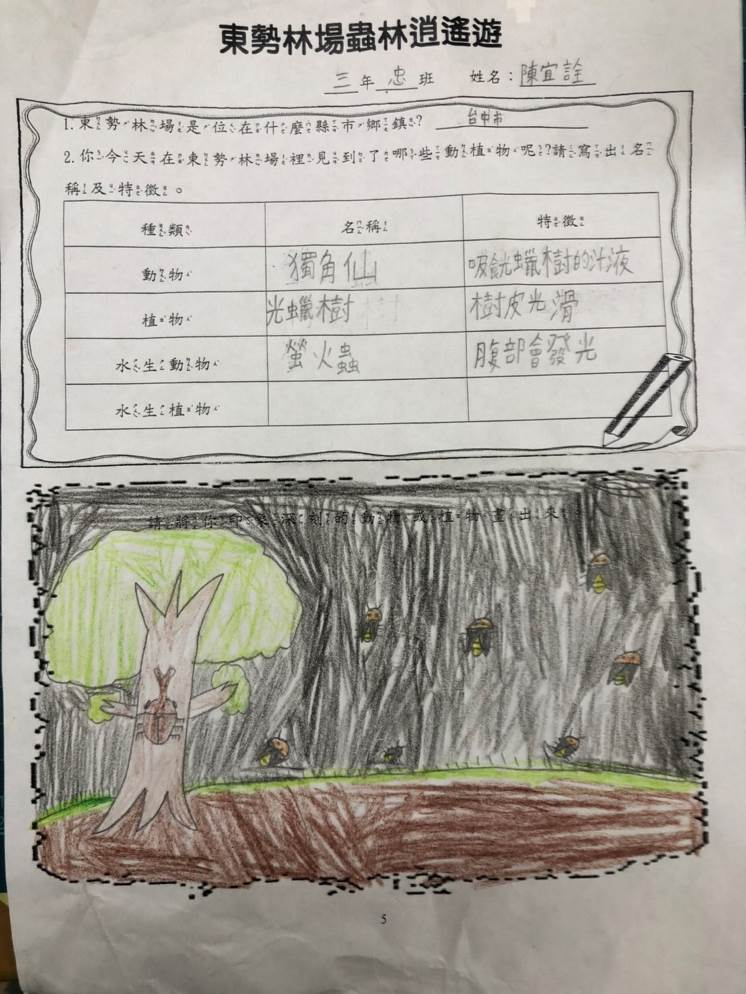 東勢林場蟲林逍遙遊
三年忠班 姓名：陳宜詮
1.東勢林場是位在什麼縣市鄉鎮? 台中市
2.你今天在東勢林場裡見到了哪些動植物呢?請寫出名
稱及特徵。
種類 名稱 特徵
動物 獨角仙 吸食光蠟樹的汁液
植物 光蠟樹 樹皮光滑
水生動物 螢火蟲 腹部會發光
水生植物
請將你印象深刻的動物或植物畫出來
5